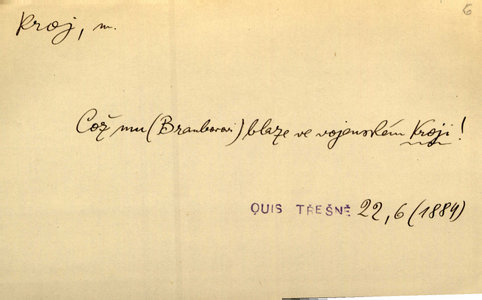 6
kroj, m.
Což mu (Branborovi) blaze ve vojenském kroji!
QUIS TŘEŠNĚ 22,6 (1884)